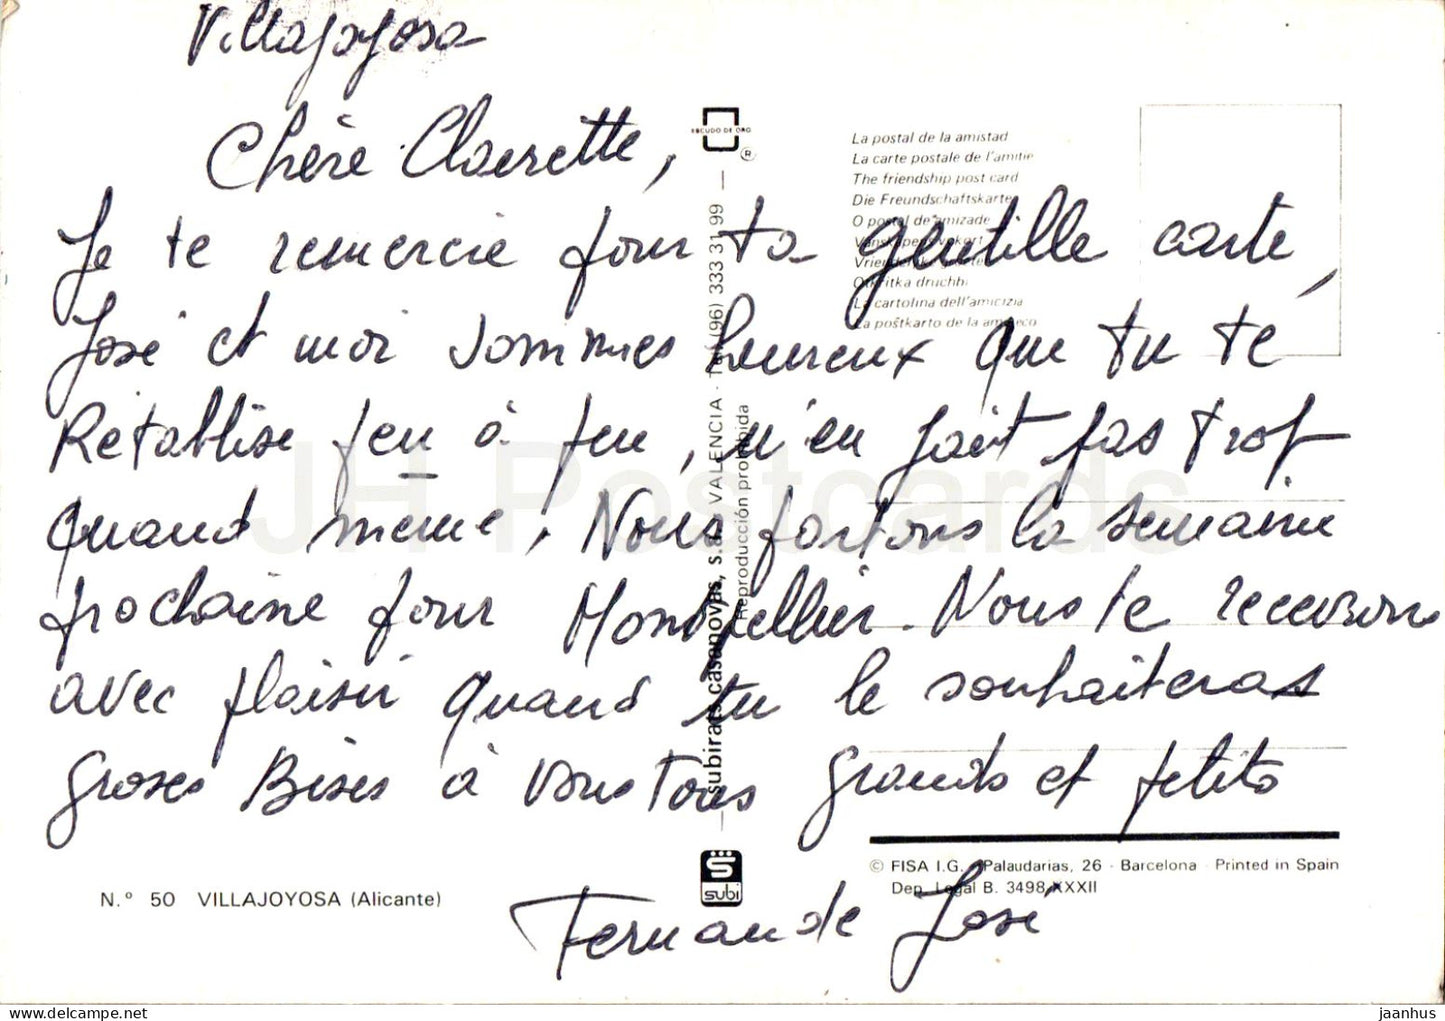 Villajoyosa
Chère Clairette,
Je te remercie pour ta gentille carte,
José et moi sommes heureux que tu te
Rétablise peu à peu, n'en fait pas trop
quand même. Nous partons la semaine
prochaine pour Montpellier. Nous te recevrons
avec plaisir quand tu le souhaiteras
Groses Bises à vous Tous Grands et petits
Fernande José
ESCUDO DE ORO
®
subirats casanovas, s.a. VALENCIA - Tel. (96) 333 31 99
Reproducción prohibida
La postal de la amistad
La carte postale de l'amitie
The friendship post card
Die Freundschaftskarte
O postal de amizade
Vänskapens vykort
Otkritka druchbi
La cartolina dell'amicizia
La poŝtkarto de la amikeco
subi
© FISA I.G. - Palaudarias, 26 - Barcelona - Printed in Spain
Dep. Legal B. 3498-XXXII
N.º 50 VILLAJOYOSA (Alicante)
JH Postcards
jaanhus